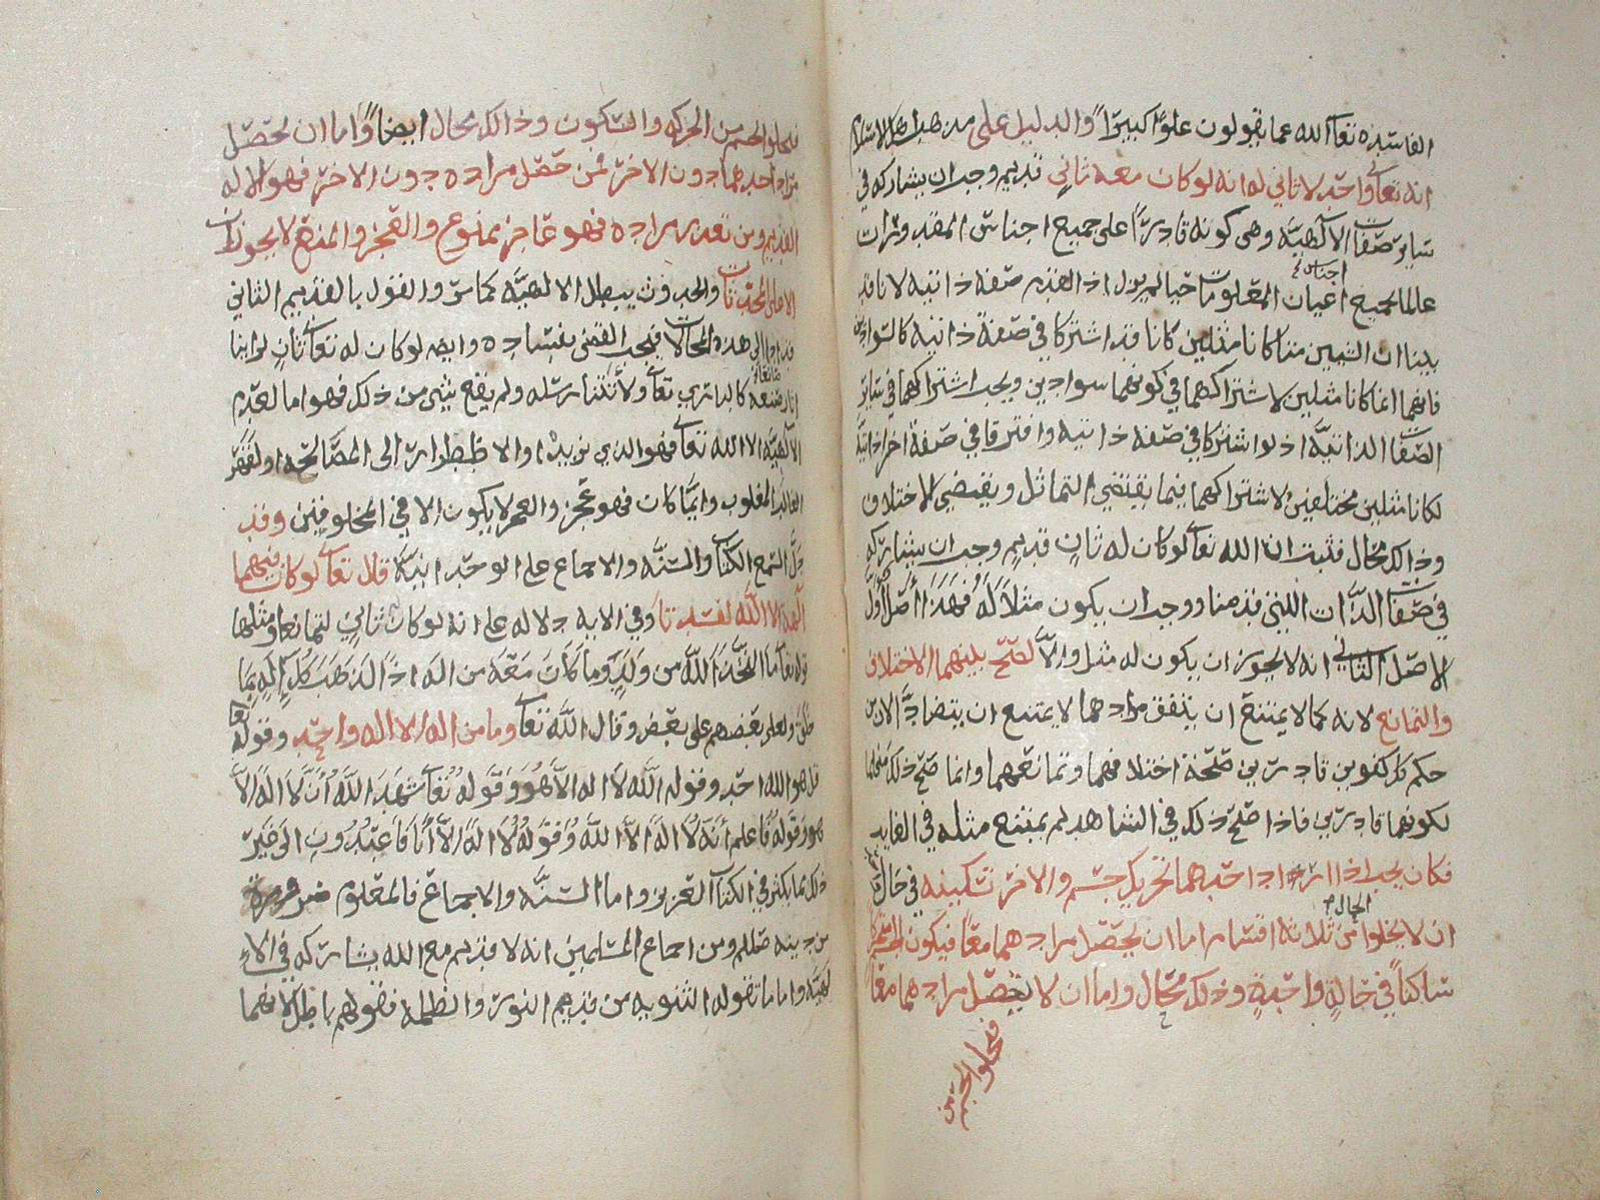 الفاسدة تعالى الله عما يقولون علوًا كبيرًا والدليل على مذهب اهل الاسلام
انه تعالى واحد لا ثاني له انه لو كان معه ثاني قديم وجب ان يشاركه في
ساير صفات الالهية وهي كونه قادرًا على جميع اجناس المقدورات
عالما بجميع اعيان اجناس المعلومات حيا لم يزل اذ القدم صفة ذاتية لانا قد
بينا ان الشيئين متى كانا مثلين كانا قد اشتركا في صفة ذاتية كالسوادين
فانهما انما كانا مثلين لاشتراكهما في كونهما سوادين ويجب اشتراكهما في ساير
الصفات الذاتية اذ لو اشتركا في صفة ذاتية وافترقا في صفة اخرا ذاتية
لكانا مثلين مختلفين لاشتراكهما فيما يقتضي التماثل ويقتضي الاختلاف
وذالك محال فثبت ان الله تعالى لو كان له ثانٍ قديم وجب ان يشاركه
في صفات الذات التي قدمنا ووجب ان يكون مثلًا لَهُ فَهَذَا أَصْلٌ أوَّل
الاصل الثاني انه لا يجوز ان يكون له مثل والاَّ لصح بينهما الاختلاف
والتمانع لانه كما لا يمتنع ان يتفق مرادهما لا يمتنع ان يتضادَّ الان من
حكم كل قادرين صحة اختلافهما وتمانعهما وانما صح ذلك
لكونهما قادرين فاذا صح ذلك في الشاهد لم يمتنع مثله في الغايب
فكان يجب اذا اراد احدهما تحريك جسم والاخر تسكينه في حال
ان لا يخلوا الحال من ثلاثة اقسام اما ان يحصل مرادهما معًا فيكون الجسم متحركا
ساكنًا في حالةٍ واحدةٍ وذلك محال واما ان لا يحصل مرادهما معًا
فيخلوا الجسم من
فيخلوا الجسم من الحركه والسكون وذالك محال ايضًا واما ان يحصل
مراد احدهما دون الاخر فمن حصل مراده دون الاخر فهو الاله
القديم ومن تعذر مراده فهو عاجز ممنوع والعجز والمنع لا يجوزان
الا على المحدثات والحدوث يبطل الالهية كما مر والقول بالقديم الثاني
قد ادا الى هذه المحالات فيجب القضى بفساده وايضا لو كان له تعالى ثانٍ لراينا
اثار صنعه كالباري تعالى ولأتتنا رسله ولم يقع شي من ذلك فهو اما لعدم
الالهية الا الله تعالى فهو الذي نريد او الاضطرار الى المصالحه او لقهر
الغالب المغلوب وايما كان فهو عجز والعجز لا يكون الا في المخلوقين وقد
دل السمع الكتاب والسنه والاجماع على الوحدانية قال تعالى لو كان فيهما
الهة الا الله لفسدتا وفي الايه دلاله على انه لو كان ثاني لتمانعا ومثلها
قوله تعالى ما اتَّخَذَ اللَّه من وَلَدٍ وما كَانَ مَعَهُ من اله اذًا لذَهَبَ كُلُّ إِلَهٍ بِمَا
خلق ولعلى بعضهم على بعض وقال الله تعالى وما من اله الا اله واحد وقوله تعالى
قل هو الله احد وقوله الله لا اله الا هو وَقَوله تعالى شَهِدَ اللَّهُ أَنَّهُ لَا الَهَ الاَّ
هو وقوله فَاعلم أَنَّهُ لَا الَهَ الاَّ اللَّه وَقَوْلُهُ لَا الَهَ الاَّ أَنَا فَاعْبُدُونِ الى غير
ذلك مما يكثر في الكتاب العزيز واما السنَّه والاجماع فالمعلوم ضرورة
من دينه صللم ومن اجماع المسلمين انه لا قديم مع الله يشاركه في الا
لهيَّه واما ما تقوله الثنويه من قديم النور والظلمه فقولهم باطل لانهما